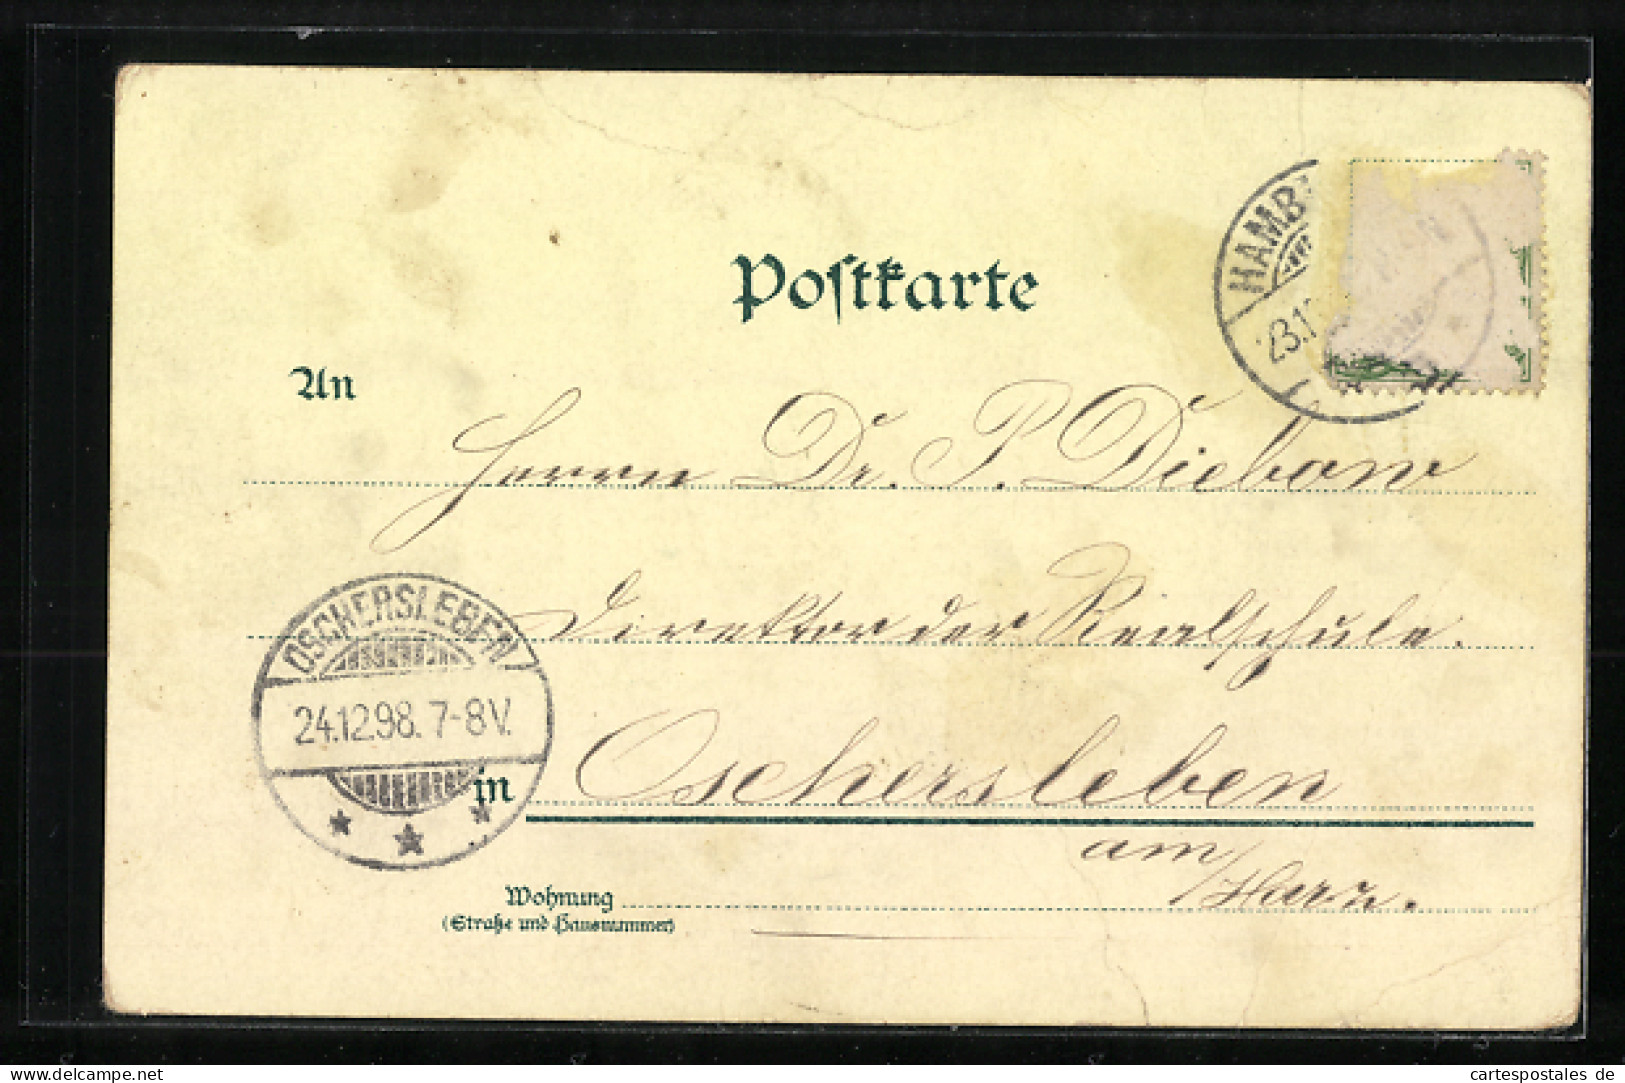 Postkarte
HAMB
23.1
1
An
Herrn Dr. P. Diebow
Direktor der Realschule.
OSCHERSLEBEN
24.12.98. 7-8V.
in Oschersleben
am Harz.
Wohnung
(Straße und Hausnummer)
cartespostales de
www.delcampe.net